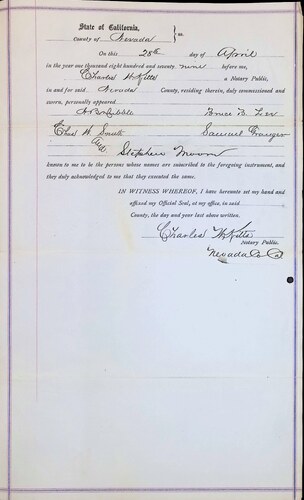 State of California,
County of Nevada } ss.
On this 28th day of April
in the year one thousand eight hundred and seventy nine before me,
Charles W Kitts a Notary Public,
in and for said Nevada County, residing therein, duly commissioned and
sworn, personally appeared
Chas W. Smith Samuel Granger
and Stephen Moore
known to me to be the persons whose names are subscribed to the foregoing instrument, and
they duly acknowledged to me that they executed the same.
IN WITNESS WHEREOF, I have hereunto set my hand and
affixed my Official Seal, at my office, in said
County, the day and year last above written.
Charles W Kitts
Notary Public.
Nevada Co. Ca